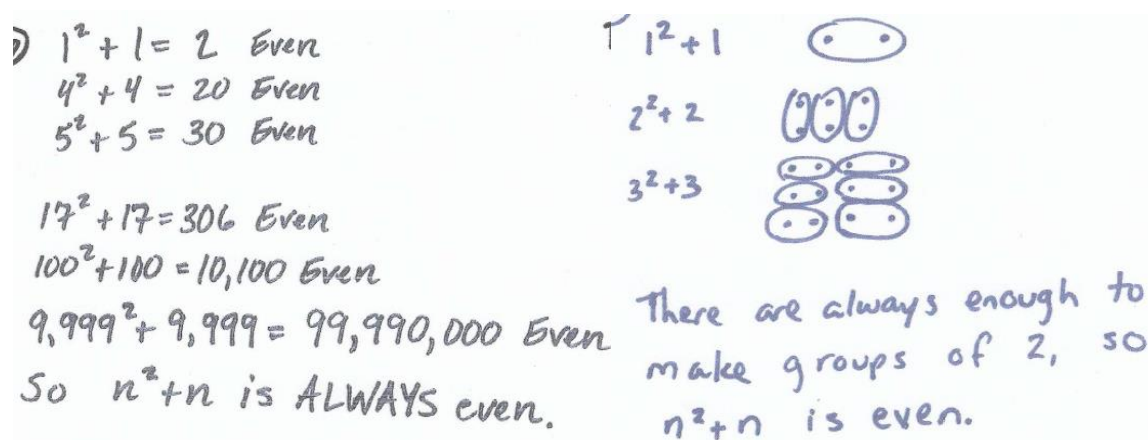 1² + 1 = 2 Even
4² + 4 = 20 Even
5² + 5 = 30 Even
17² + 17 = 306 Even
100² + 100 = 10,100 Even
9,999² + 9,999 = 99,990,000 Even
So n² + n is ALWAYS even.
1² + 1
2² + 2
3² + 3
There are always enough to
make groups of 2, so
n² + n is even.